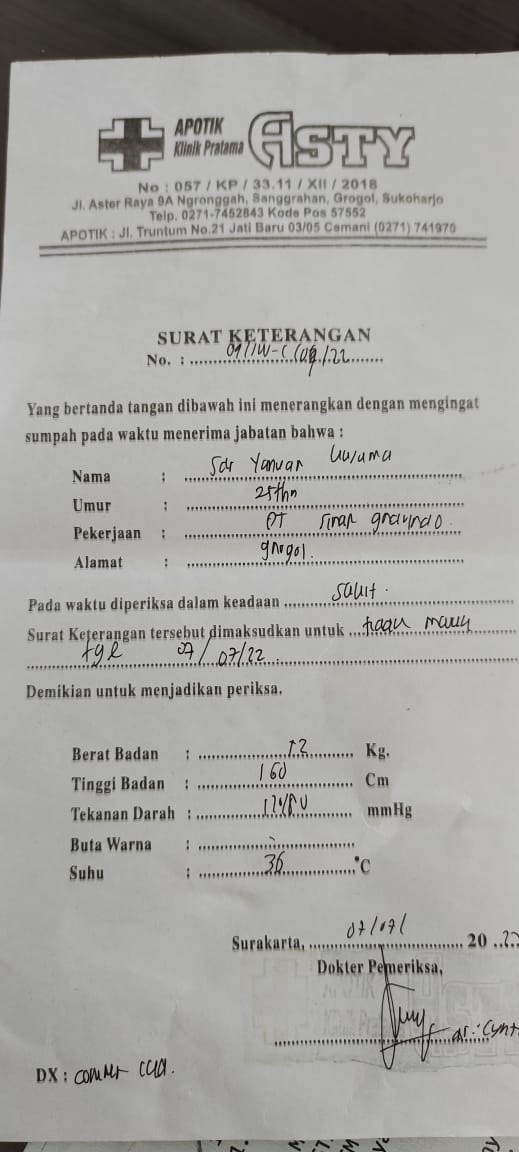 APOTIK
Klinik Pratama ASTY
No : 057 / KP / 33.11 / XII / 2018
Jl. Aster Raya 9A Ngronggah, Sanggrahan, Grogol, Sukoharjo
Telp. 0271-7452843 Kode Pos 57552
APOTIK : Jl. Truntum No.21 Jati Baru 03/05 Cemani (0271) 741970
SURAT KETERANGAN
No. :
Yang bertanda tangan dibawah ini menerangkan dengan mengingat
sumpah pada waktu menerima jabatan bahwa :
Nama : Sdr Yanuar
Umur : 25 thn
Pekerjaan : PT Sinar
Alamat : grogol.
Pada waktu diperiksa dalam keadaan sakit.
Surat Keterangan tersebut dimaksudkan untuk
tgl 07/07/22
Demikian untuk menjadikan periksa.
Berat Badan : Kg.
Tinggi Badan : 160 Cm
Tekanan Darah : mmHg
Buta Warna : -
Suhu : 36 °C
Surakarta, 07/07/ 20 22
Dokter Pemeriksa,
dr. Cynt
DX :